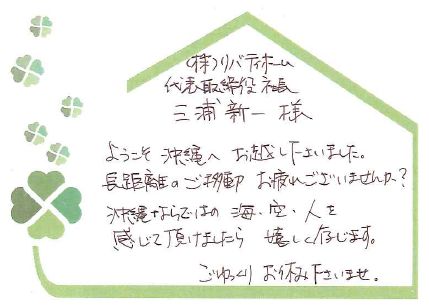 (株)リバティホーム
代表取締役社長
三浦新一様
ようこそ沖縄へお越し下さいました。
長距離のご移動お疲れございませんか?
沖縄ならではの海、空、人を
感じて頂けましたら嬉しく存じます。
ごゆっくりお休み下さいませ。